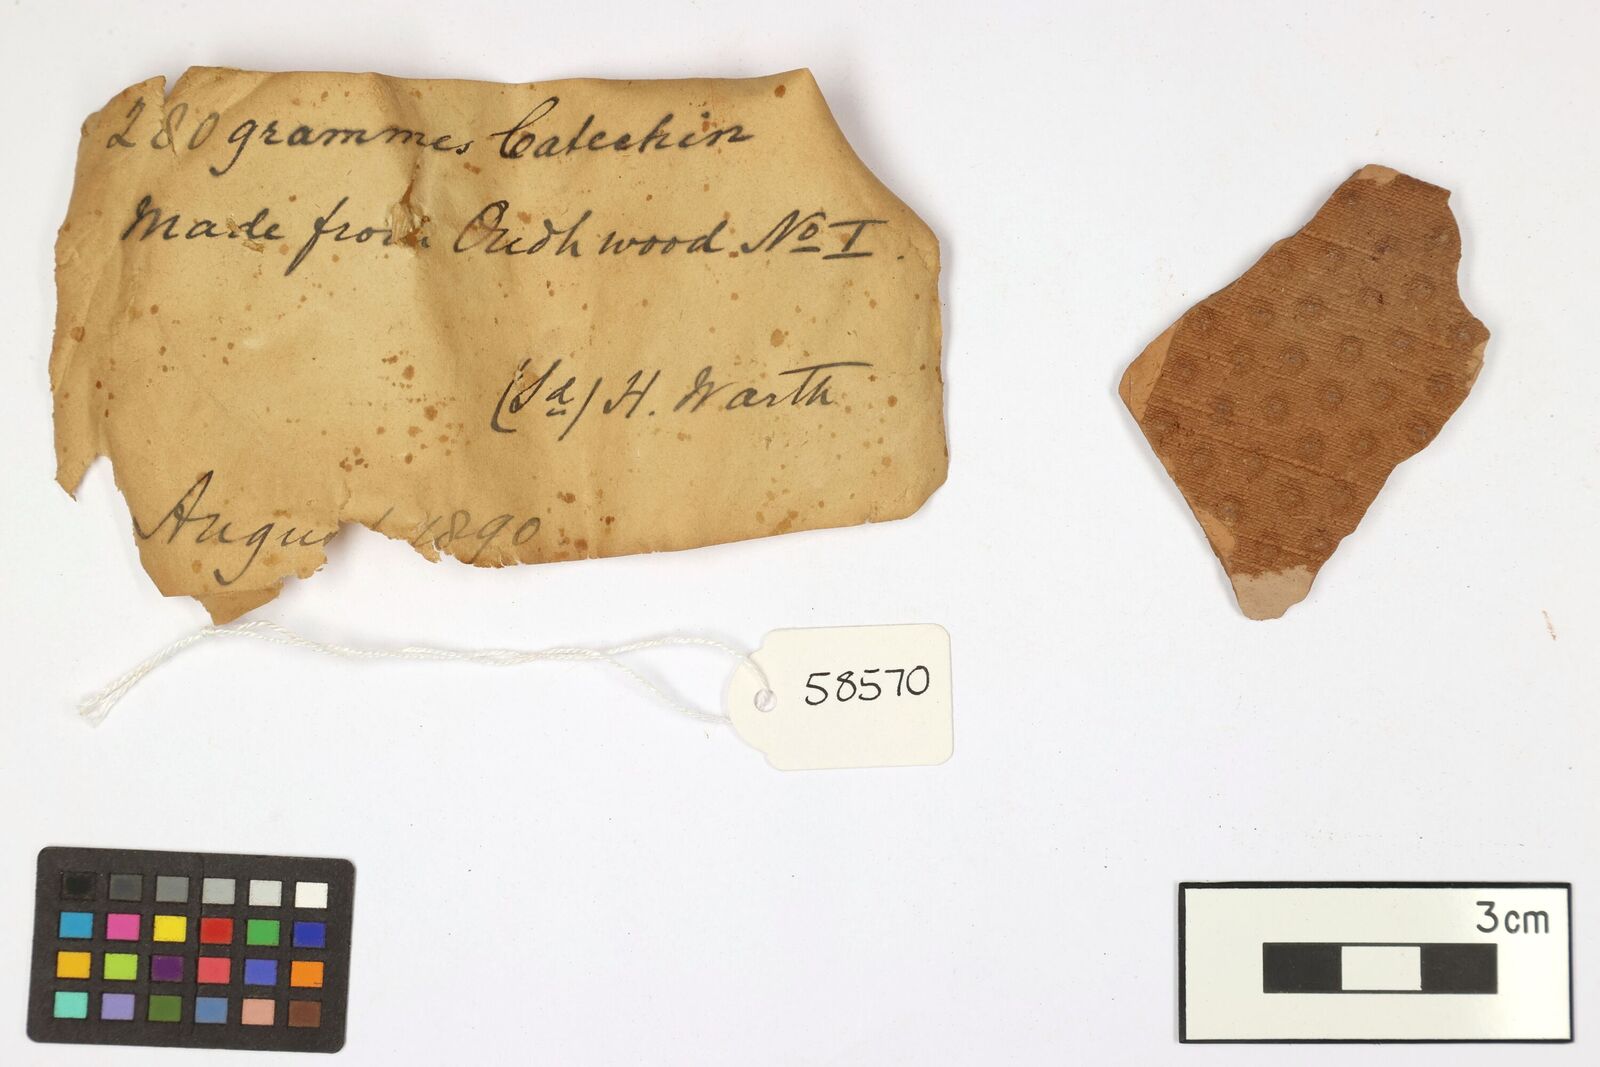 280 grammes Catechin
Made from Oudh wood No I.
(Sd) H. Warth
August 1890
58570
3cm